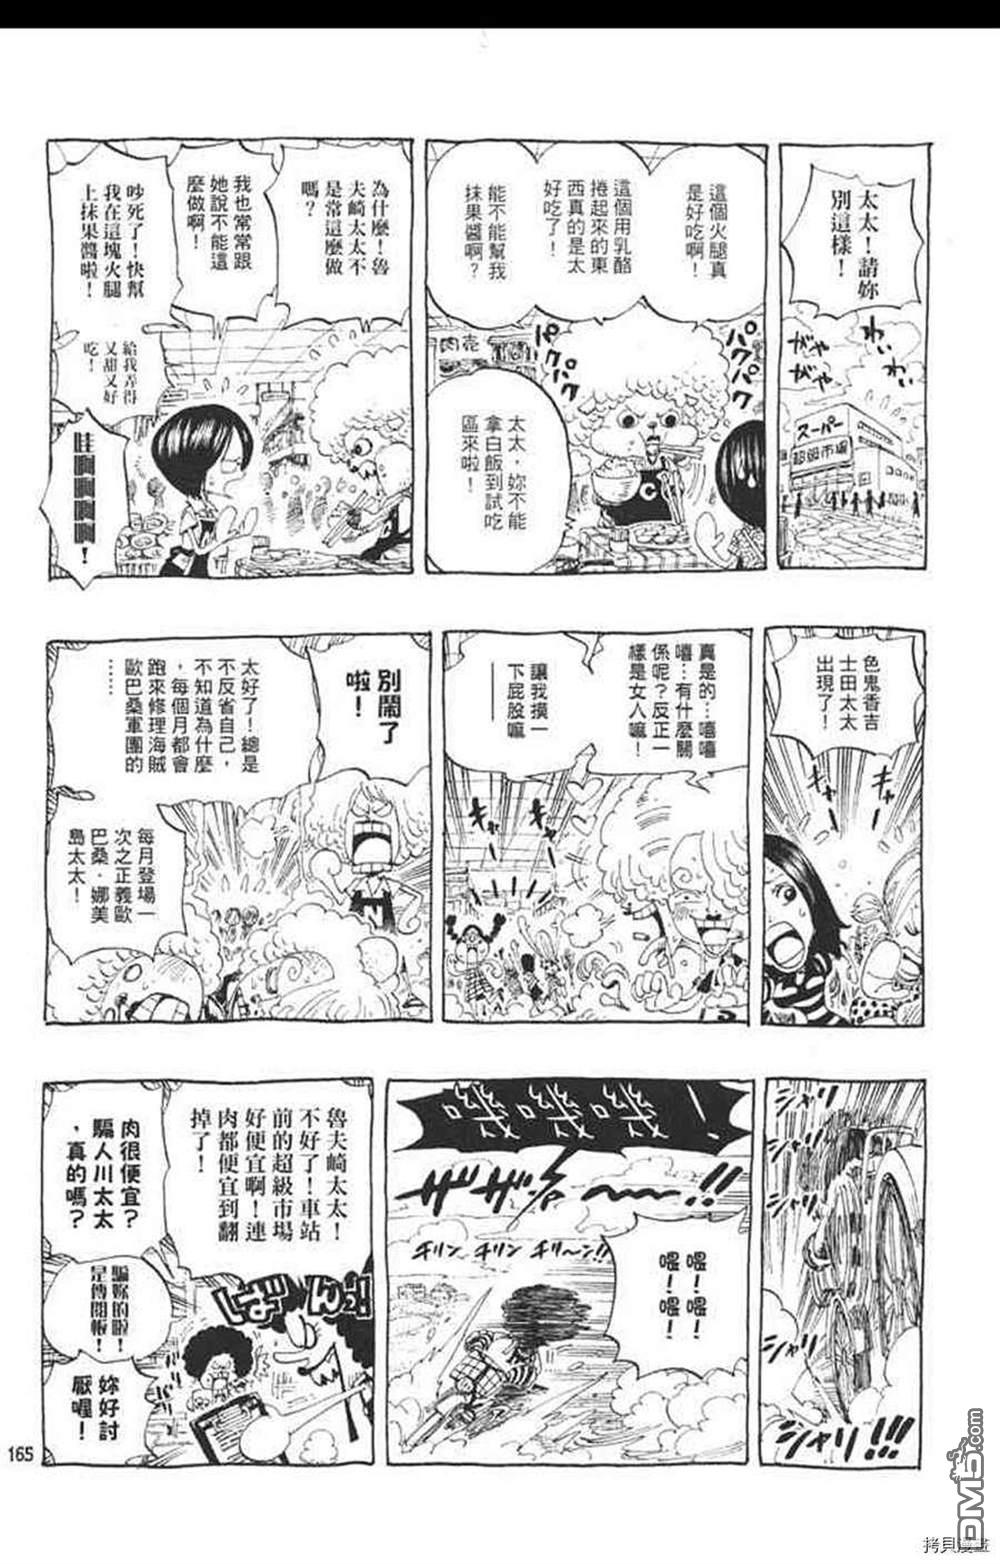 太太！請妳
別這樣！
わい
わい
ガヤ
ガヤ
スーパー
這個火腿真
是好吃啊！
這個用乳酪
捲起來的東
西真的是太
好吃了！
能不能幫我
抹果醬啊？
パクパク
パクパク
肉売
太太，妳不能
拿白飯到試吃
區來啦！
C
為什麼！魯
夫崎太太不
是常這麼做
嗎？
我也常常跟
她說不能這
麼做啊！
吵死了！快幫
我在這塊火腿
上抹果醬啦！
給我弄得
又甜又好
吃！
哇啊啊啊啊！
色鬼香吉
士田太太
出現了！
キャー
キャー
真是的…嘻嘻
嘻…有什麼關
係呢？反正一
樣是女人嘛！
讓我摸一
下屁股嘛
——
キャー
キャー
別鬧了
啦！
太好了！總是
不反省自己，
不知道為什麼
，每個月都會
跑來修理海賊
歐巴桑軍團的
……
每月登場一
次之正義歐
巴桑．娜美
島太太！
シャリ
シャリ
シャリ
シャリ!!!
嘰嘰嘰！
チリン チリン チリ〜ン!!
喂！喂！
喂！喂！
魯夫崎太太！
不好了！車站
前的超級市場
好便宜啊！連
肉都便宜到翻
掉了！
しばーん!!
肉很便宜？
騙人川太太
，真的嗎？
騙妳的啦！
是傳閱板！
妳好討
厭喔！
165
DM5.com
拷貝漫畫